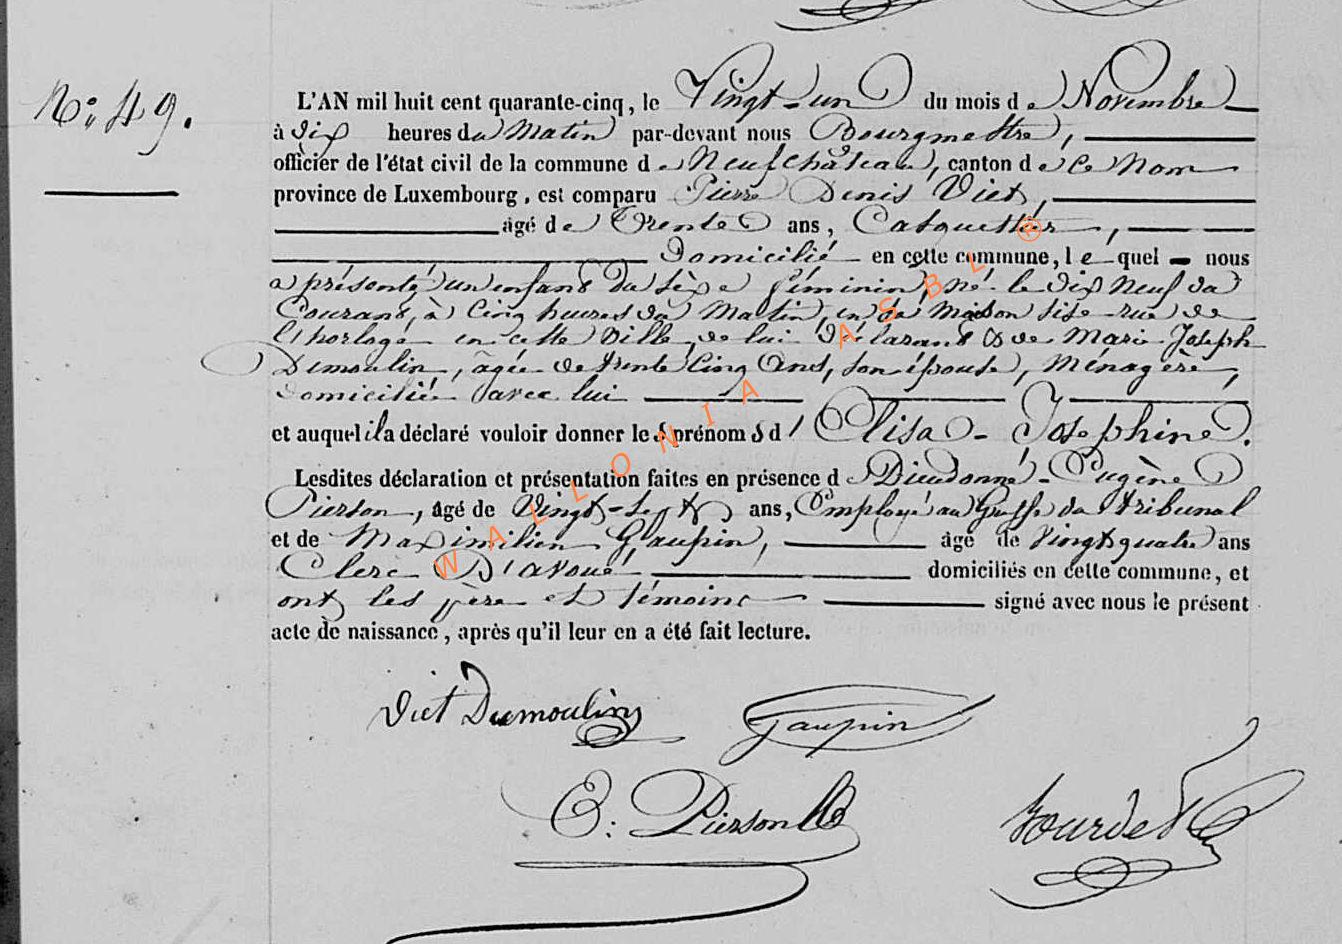 N.º 49.
L'AN mil huit cent quarante-cinq, le Vingt-un du mois de Novembre
à dix heures du Matin par-devant nous Bourgmestre,
officier de l'état civil de la commune de Neufchâteau, canton de ce Nom
province de Luxembourg, est comparu Pierre Denis Viet,
âgé de Trente ans, Casquettier,
Domicilié en cette commune, lequel nous
a présenté un enfant du sèxe féminin, né le dix neuf du
Courant, à cinq heures du Matin, en sa maison sise rue de
l'horloge en cette Ville, de lui déclarant & de Marie Joseph
Dumoulin, âgée de trente cinq Ans, son épouse, Ménagère,
domiciliée avec lui
et auquel il a déclaré vouloir donner les prénoms d'Elisa-Joséphine.
Lesdites déclaration et présentation faites en présence de Dieudonné-Eugène
Pierson, âgé de Vingt-sept ans, Employé au Greffe du tribunal
et de Maximilien Gaupin, âgé de vingt quatre ans
Clerc D'avoué domiciliés en cette commune, et
ont les père et témoins signé avec nous le présent
acte de naissance, après qu'il leur en a été fait lecture.
Viet Dumoulin Gaupin
E: Pierson
WALLONIA ASBL ®